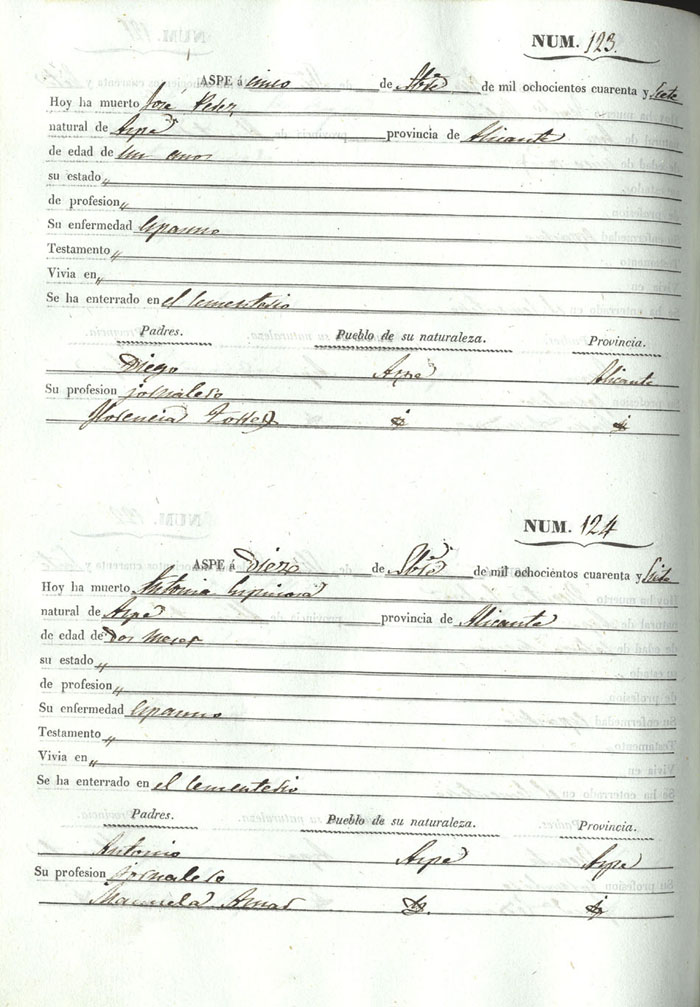 NUM. 123.
ASPE á cinco de Sbre de mil ochocientos cuarenta y Siete
Hoy ha muerto Jose Perez
natural de Aspe provincia de Alicante
de edad de un años
su estado "
de profesion "
Su enfermedad Espasmo
Testamento "
Vivia en "
Se ha enterrado en el Cementerio
Padres. Pueblo de su naturaleza. Provincia.
Diego Aspe Alicante
Su profesion jornalero
Florencia Torres
NUM. 124
ASPE á Diez de Sbre de mil ochocientos cuarenta y Siete
Hoy ha muerto Antonia
natural de Aspe provincia de Alicante
de edad de Dos meses
su estado "
de profesion "
Su enfermedad Espasmo
Testamento "
Vivia en "
Se ha enterrado en el Cementerio
Padres. Pueblo de su naturaleza. Provincia.
Antonio Aspe Aspe
Su profesion jornalero
Manuela Aznar